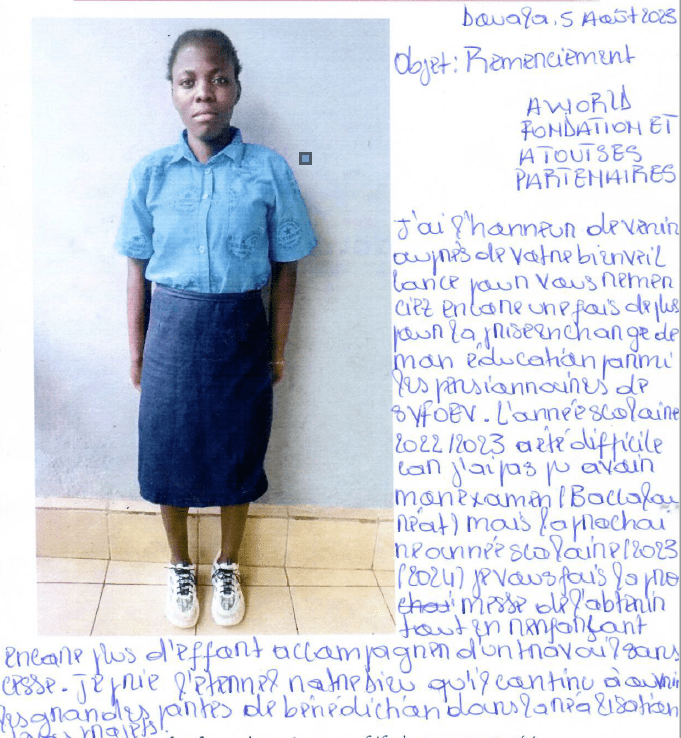 Douala, 5 Août 2023
Objet : Remerciement
AWORLD
FONDATION ET
A TOUT SES
PARTENAIRES
J'ai l'honneur de venir
auprès de votre bienveil
lance pour vous remer
ciez encore une fois de plus
pour la prise en charge de
mon éducation parmi
les pensionnaires de
SVFOEV. L'année scolaire
2022/2023 a été difficile
car j'ai pas pu avoir
mon examen (Baccalau
réat) mais la prochai
ne année scolaire (2023
(2024) je vous fais la pro
messe de l'obtenir
tout en renforçant
encore plus d'effort accompagner d'un travail sans
cesse. Je prie l'éternel notre Dieu qu'il continu à ouvrir
les grandes portes de bénédiction dans la réalisation
projets.